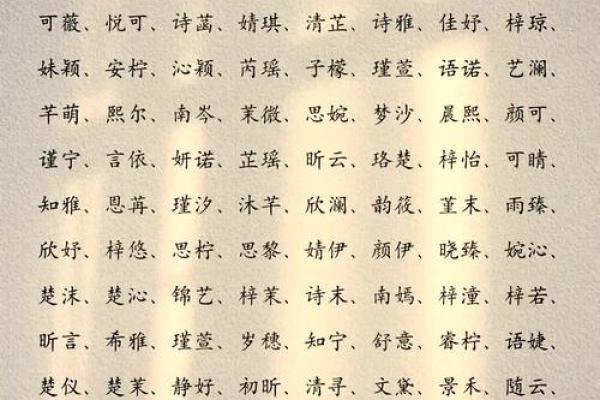 可薇、悦可、诗菡、婧琪、清芷、诗雅、佳妤、梓琼、
妹颖、安柠、沁颖、芮瑶、子檬、瑾萱、语诺、艺澜、
芊萌、熙尔、南岑、茉微、思婉、梦沙、晨熙、颜可、
谨宁、言依、妍诺、芷瑶、昕云、珞楚、梓怡、可晴、
知雅、恩苒、瑾汐、沐芊、欣澜、韵筱、堇末、雨臻、
欣妤、梓悠、思柠、思黎、婧伊、颜伊、晓臻、婉沁、
楚沫、楚沁、锦艺、梓茉、诗末、南嫣、梓潼、梓若、
昕言、希雅、瑾萱、岁穗、知宁、舒意、睿柠、语婕、
楚仪、楚茉、静好、初昕、清寻、文黛、景禾、随云、